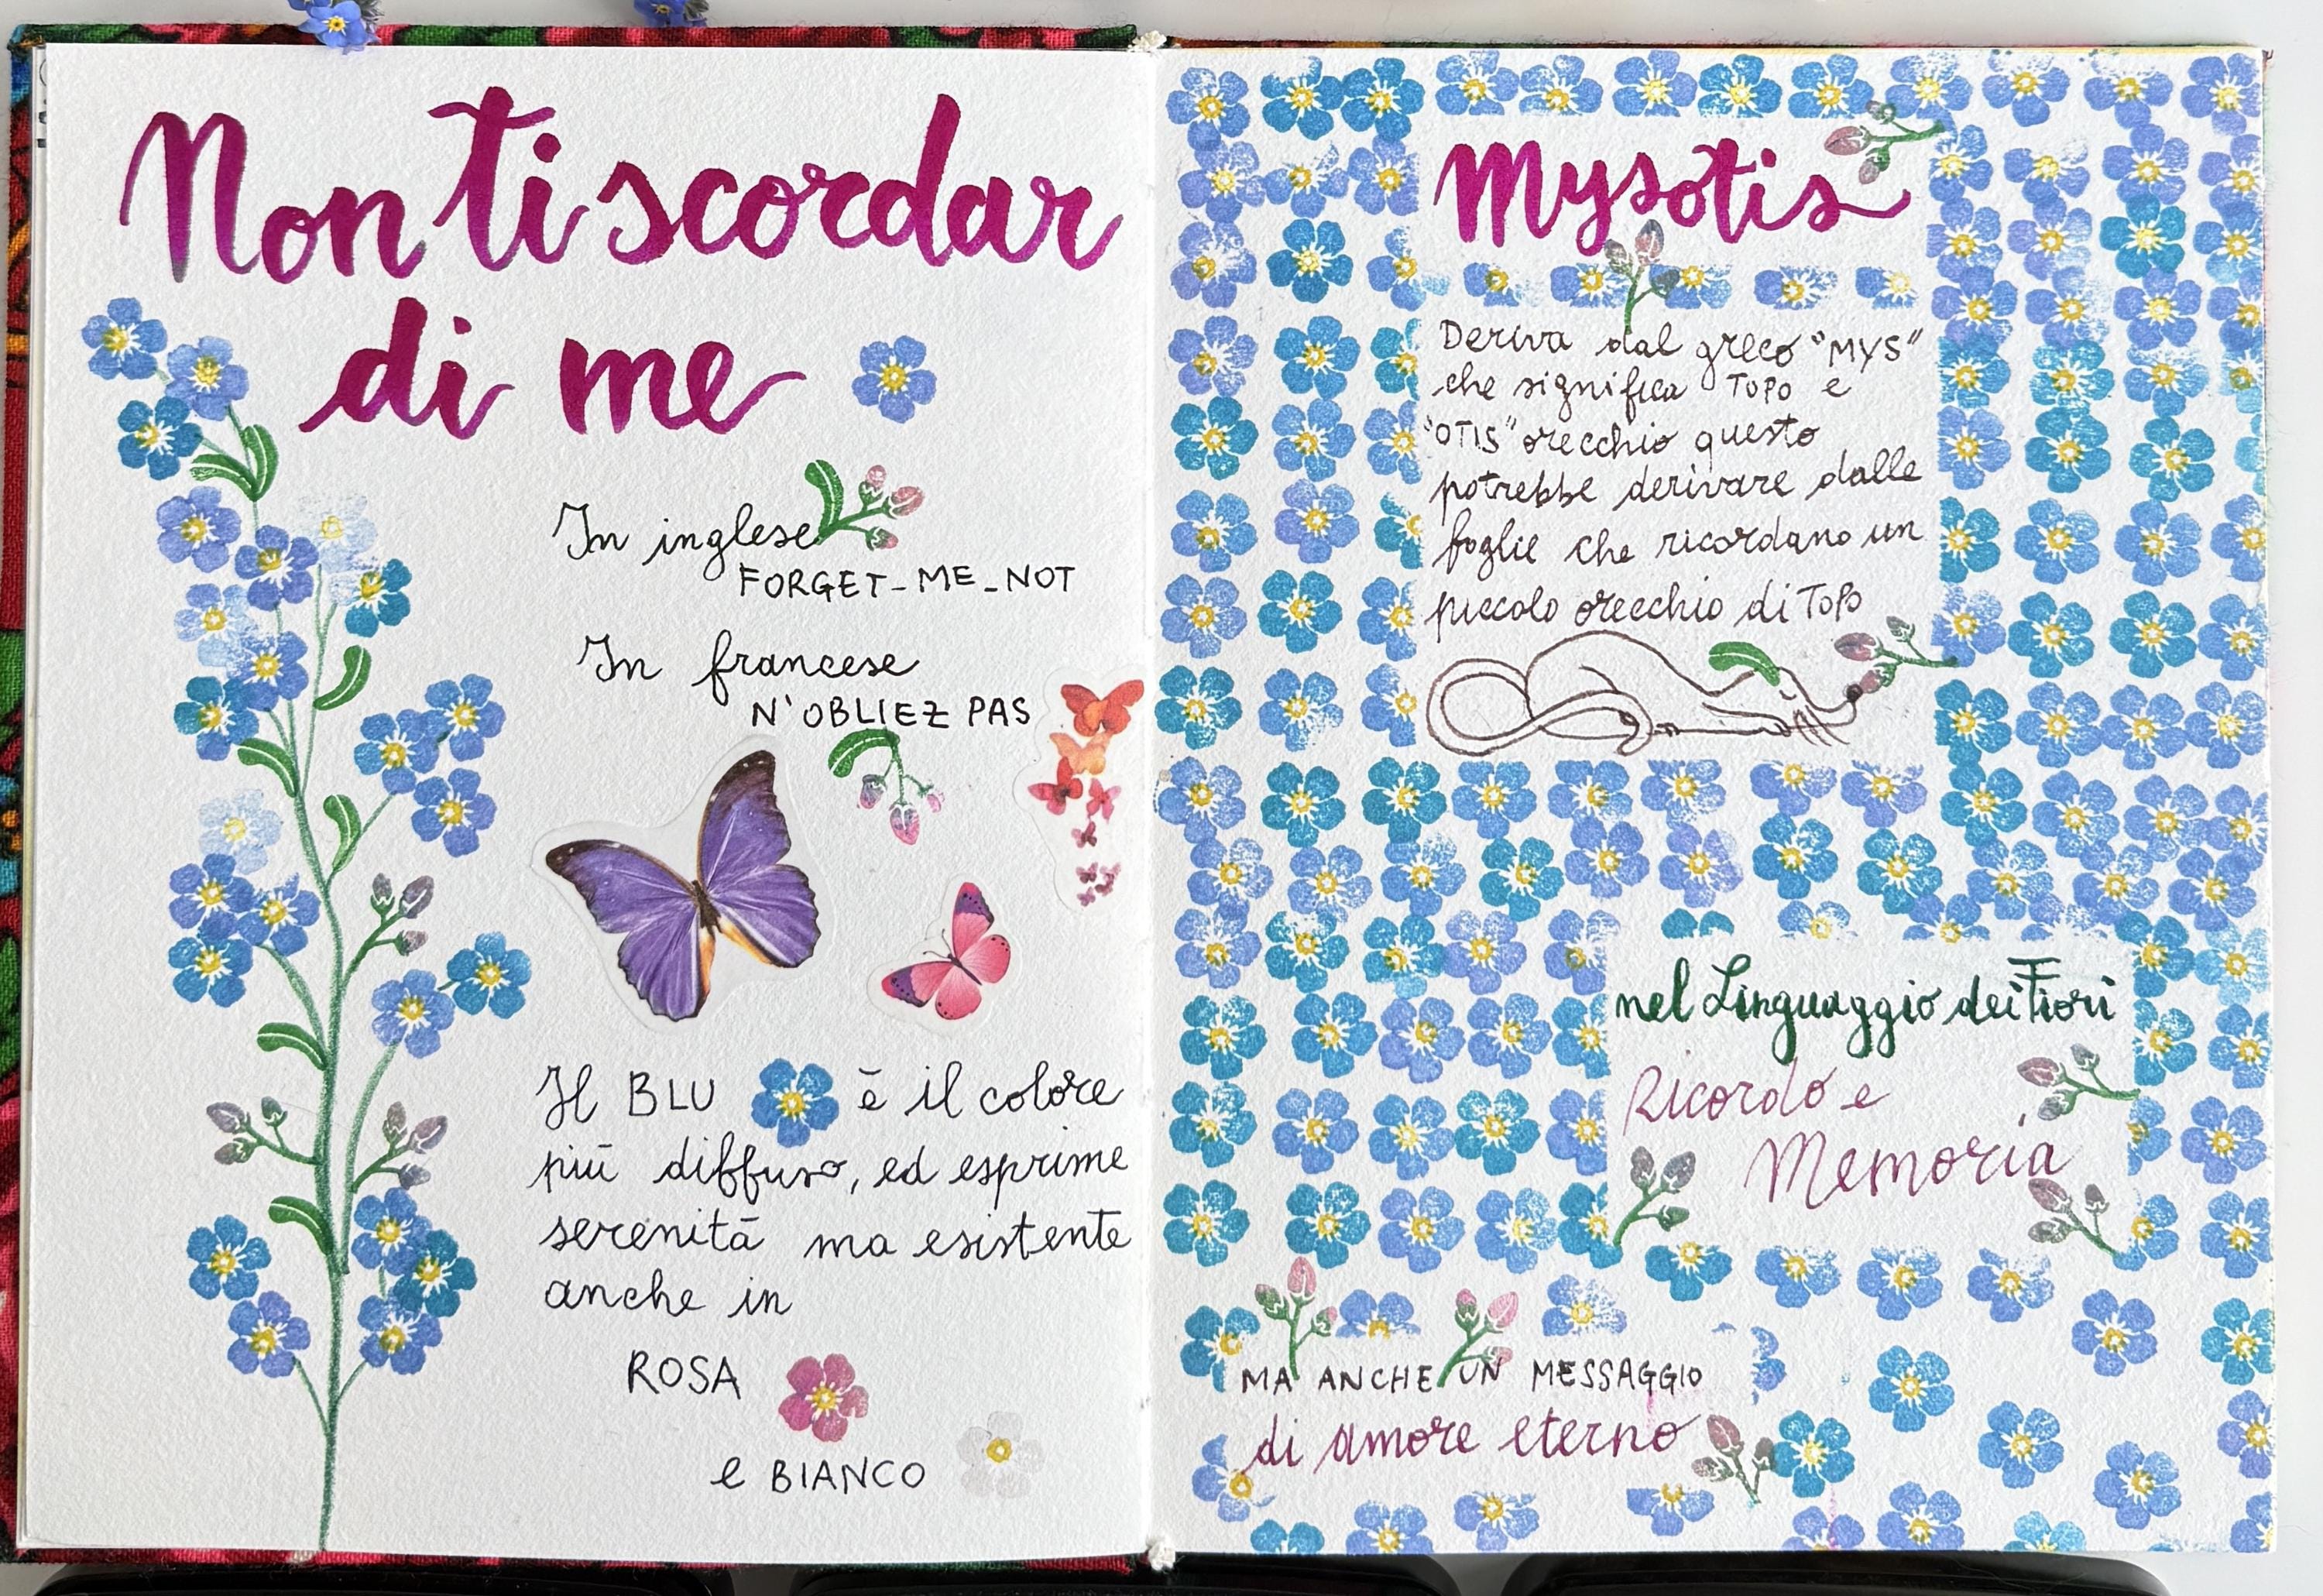 Non ti scordar
di me
In inglese
FORGET-ME-NOT
In francese
N'OBLIEZ PAS
Il BLU è il colore
più diffuso, ed esprime
serenità ma esistente
anche in
ROSA
e BIANCO
Mysotis
Deriva dal greco "MYS"
che significa TOPO e
"OTIS" orecchio questo
potrebbe derivare dalle
foglie che ricordano un
piccolo orecchio di TOPO
nel Linguaggio dei Fiori
Ricordo e
Memoria,
MA ANCHE UN MESSAGGIO
di amore eterno